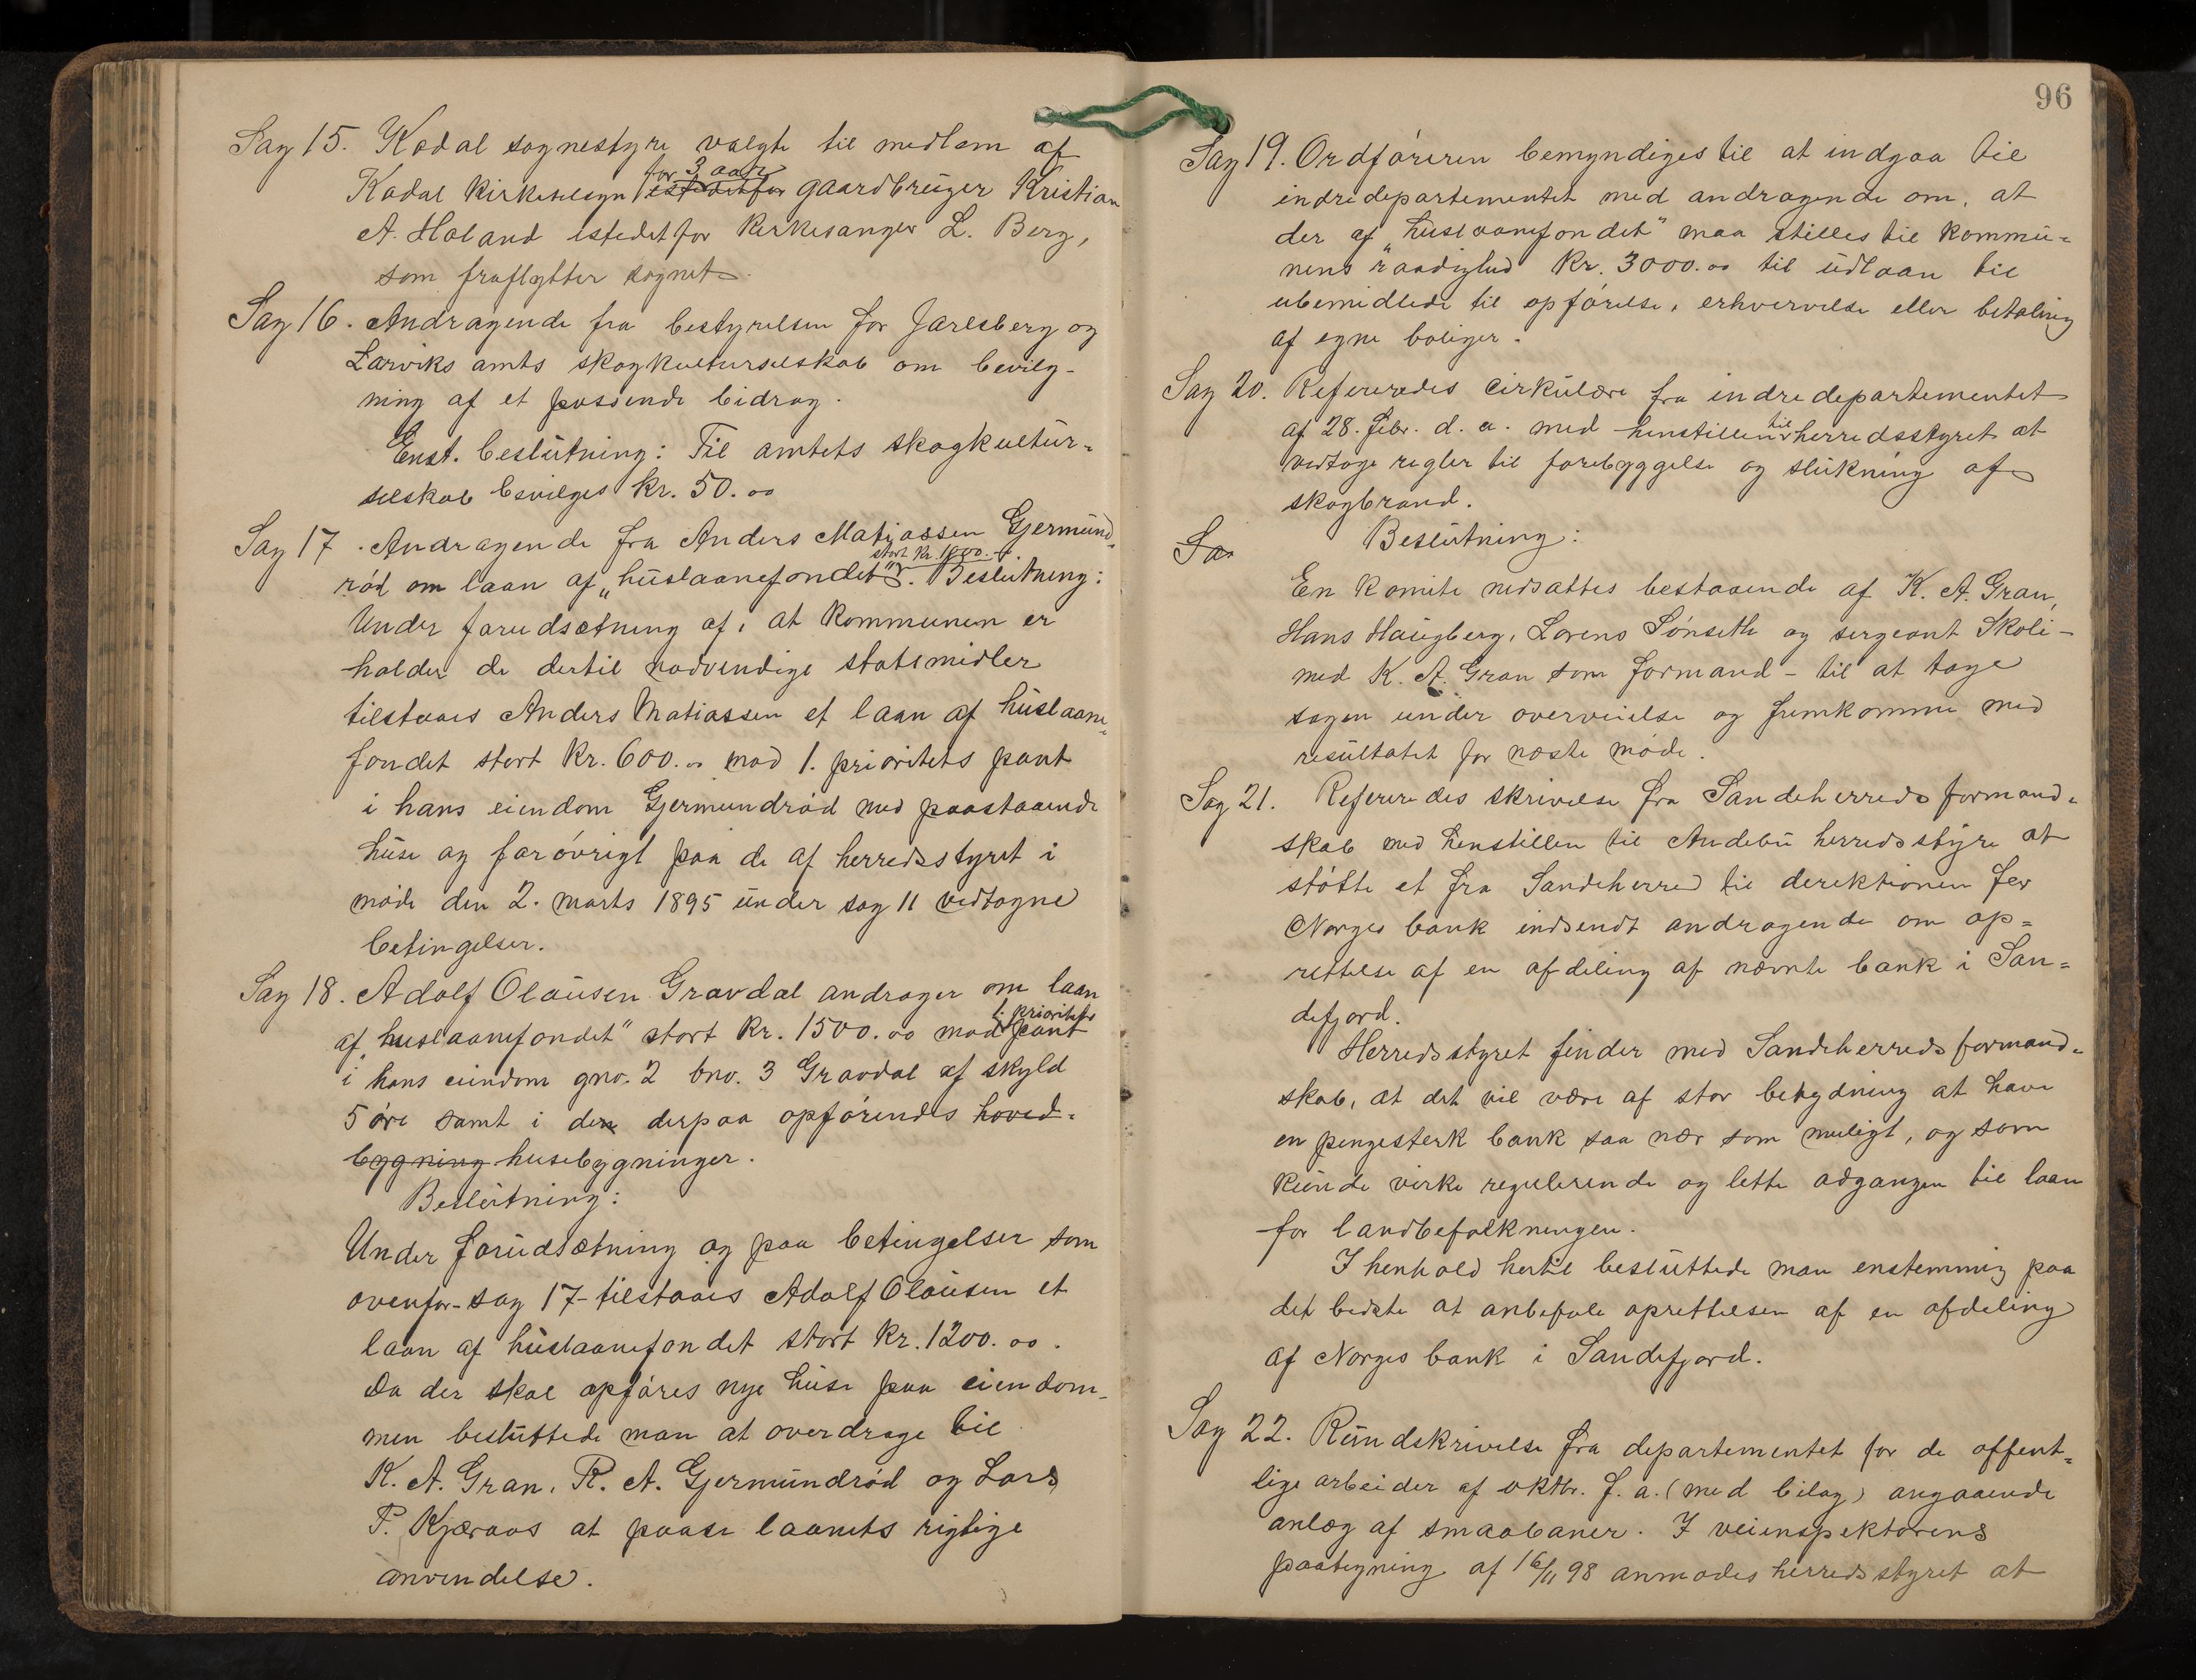 Sag 15. Kodal sognestyre valgte til medlem af
for 3 aar
Kodal kirketilsyn istedetfor gaardbruger Kristian
A. Holand istedetfor kirkesanger L. Berg,
som fraflytter sognet.
Sag 16. Andragende fra bestyrelsen for Jarlsberg og
Larviks amts skogkulturselskab om bevilg-
ning af et passende bidrag.
Enst. beslutning: Til amtets skogkultur-
selskab bevilges kr. 50.00
Sag 17. Andragende fra Anders Matiassen Gjermund-
stort kr. 1000.
rød om laan af „huslaanefondet”. Beslutning:
Under forudsætning af, at kommunen er
holder de dertil nødvendige statsmidler
tilstaaes Anders Matiassen et laan af huslaane-
fondet stort kr. 600.00 mod 1. prioritets pant
i hans eiendom Gjermundrød med paastaaende
huse og forøvrigt paa de af herredsstyret i
møde den 2. marts 1895 under sag 11 vedtagne
betingelser.
Sag 18. Adolf Olausen Gravdal andrager om laan
1. prioritets
af „huslaanefondet” stort kr. 1500.00 mod pant
i hans eiendom gno. 2 bno. 3 Gravdal af skyld
5 øre samt i den derpaa opførendes hoved-
bygning husebygninger.
Beslutning:
Under forudsætning og paa betingelser som
ovenfor - sag 17 - tilstaaes Adolf Olausen et
laan af huslaanefondet stort kr. 1200.00.
Da der skal opføres nye huse paa eiendom-
men besluttede man at overdrage til
K. A. Gran, R. A. Gjermundrød og Lars
P. Kjæraas at paase laanets rigtige
anvendelse.
96
Sag 19. Ordføreren bemyndiges til at indgaa til
indredepartementet med andragende om, at
der af „huslaanefondet” maa stilles til kommu-
nens raadighed kr. 3000.00 til udlaan til
ubemidlede til opførelse, erhvervelse eller betaling
af egne boliger.
Sag 20. Refereredes cirkulære fra indredepartementet
til
af 28. febr. d. a. med henstillen herredsstyret at
vedtage regler til forebyggelse og slukning af
skogbrand.
Sa
Beslutning:
En komite nedsattes bestaaende af K. A. Gran,
Hans Haugberg, Lorens Sønseth og sergeant Skoli -
med K. A. Gran som formand - til at tage
sagen under overveielse og fremkomme med
resultatet for næste møde.
Sag 21. Refereredes skrivelse fra Sandeherreds formand-
skab med henstillen til Andebu herredsstyre at
støtte et fra Sandeherred til derektionen for
Norges bank indsendt andragende om op-
rettelse af en afdeling af nævnte bank i San-
defjord.
Herredsstyret finder med Sandeherreds formand-
skab, at det vil være af stor betydning at have
en pengesterk bank saa nær som muligt, og som
kunde virke regulerende og lette adgangen til laan
for landbefolkningen.
I henhold hertil besluttede man enstemmig paa
det bedste at anbefale oprettelsen af en afdeling
af Norges bank i Sandefjord.
Sag 22. Rundskrivelse fra departementet for de offent-
lige arbeider af oktbr. f. a. (med bilag) angaaende
anlæg af smaabaner. I veiinspektørens
paategning af 16/11 98 anmodes herredsstyret at